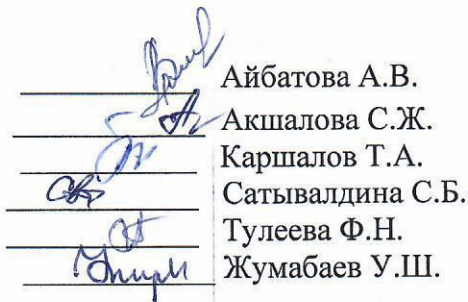 Айбатова А.В.
Акшалова С.Ж.
Каршалов Т.А.
Сатывалдина С.Б.
Тулеева Ф.Н.
Жумабаев У.Ш.